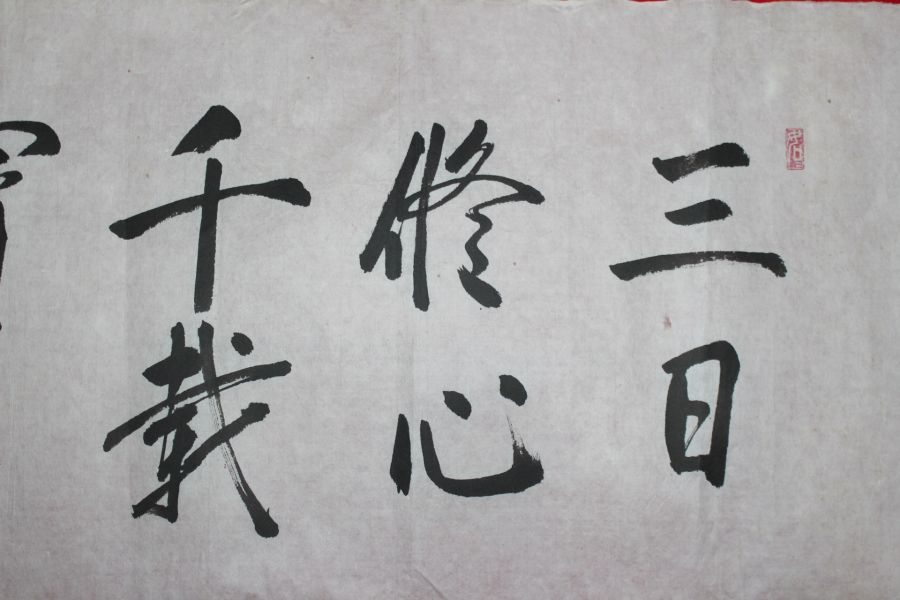 三日
修心
千载